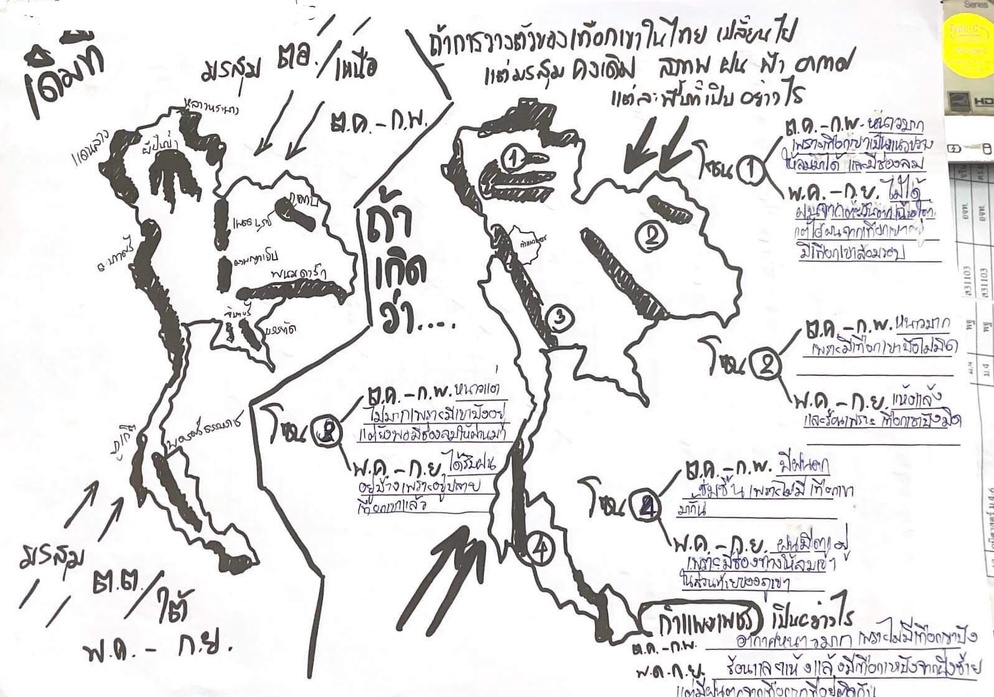 เดิมที
มรสุม ตอ./เหนือ
ต.ค. - ก.พ.
หลวงพระบาง
แดนลาว
ผีปันน้ำ
ภูพาน
เพชรบูรณ์
ถนนธงชัย
ดงพญาเย็น
พนมดงรัก
จันทบุรี
บรรทัด
ภูเก็ต
นครศรีธรรมราช
มรสุม ต.ต./ใต้
พ.ค. - ก.ย.
ถ้า
เกิด
ว่า....
ถ้าการวางตัวของเทือกเขาในไทย เปลี่ยนไป
แต่มรสุม คงเดิม สภาพ ฝน ฟ้า อากาศ
แต่ละพื้นที่เป็น อย่างไร
1
2
3
4
กำแพงเพชร
โซน 1
ต.ค. - ก.พ. หนาวมาก
เพราะเทือกเขาเป็นแนวขวาง
ให้ลมมาได้ และมีช่องลม
พ.ค. - ก.ย. ไม่ได้
มีเทือกเขาล้อมรอบ
โซน 2
ต.ค. - ก.พ. หนาวมาก
เพราะมีเทือกเขาบังไม่มิด
พ.ค. - ก.ย. แห้งแล้ง
และร้อนเพราะ เทือกเขาบังมิด
โซน 3
ต.ค. - ก.พ. หนาวแต่
ไม่มากเพราะมีเขาบังอยู่
แต่ยังพอมีช่องลมให้ผ่านมา
พ.ค. - ก.ย. ได้รับฝน
อยู่บ้างเพราะอยู่ปลาย
เทือกเขาแล้ว
โซน 4
ต.ค. - ก.พ. มีฝนตก
ชุ่มชื้น เพราะไม่มีเทือกเขา
มากั้น
พ.ค. - ก.ย. ฝนมีตกอยู่
เพราะมีช่องทางให้ลมเข้า
ในส่วนท้ายของภูเขา
กำแพงเพชร เป็นอย่างไร
ต.ค. - ก.พ. อากาศหนาวมาก เพราะไม่มีเทือกเขาบัง
พ.ค. - ก.ย. ร้อนและแห้งแล้งมีเทือกเขาบังจากฝั่งซ้าย
Series
HD
ส31103
ส31103